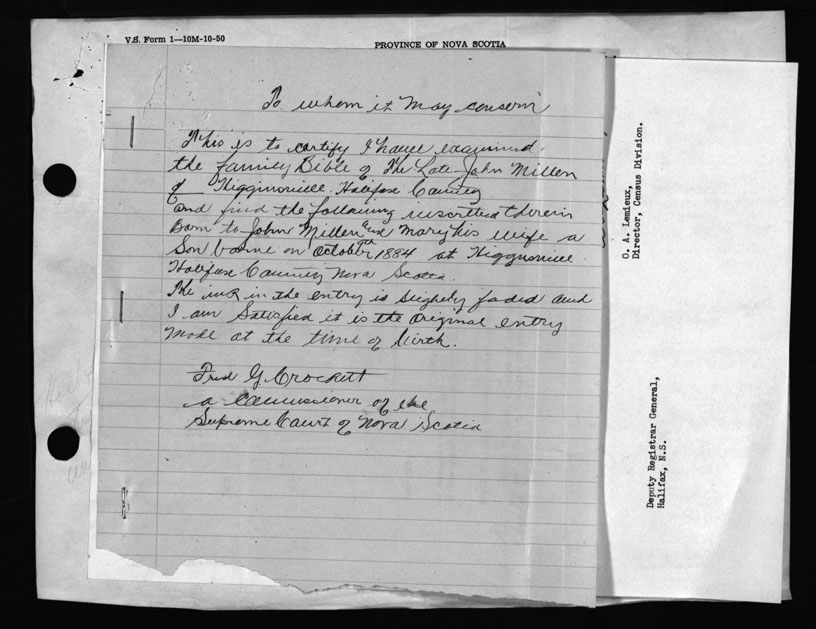 V.S. Form 1—10M-10-50
PROVINCE OF NOVA SCOTIA
To whom it May concern
This is to certify I have examined
the family Bible of The Late John Millen
of Higginsville. Halifax County
and find the following inscribed therein
Born to John Millen and Mary his wife a
Son borne on October th 1884 at Higginsville
Halifax County Nova Scotia.
The ink in the entry is slightly faded and
I am Satisfied it is the original entry
made at the time of birth.
Fred G. Crockett
a Commissioner of the
Supreme Court of Nova Scotia
O. A. Lemieux,
Director, Census Division.
Deputy Registrar General,
Halifax, N.S.